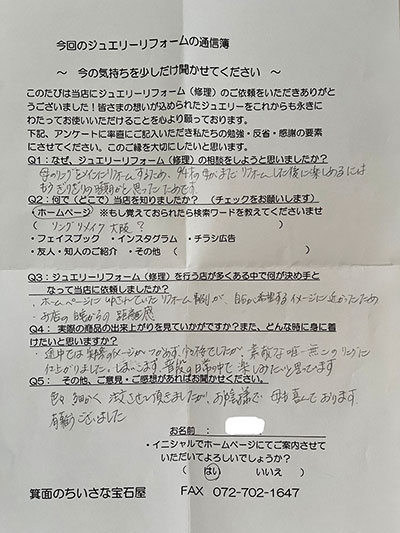 今回のジュエリーリフォームの通信簿
～ 今の気持ちを少しだけ聞かせてください ～
このたびは当店にジュエリーリフォーム（修理）のご依頼をいただきありがと
うございました！皆さまの想いが込められたジュエリーをこれからも永きに
わたってお使いいただけることを心より願っております。
下記、アンケートに率直にご記入いただき私たちの勉強・反省・感謝の要素
にさせてください。このご縁を大切にしたいと思います。
Q1：なぜ、ジュエリーリフォーム（修理）の相談をしようと思いましたか？
母のリングをメインにリフォームするため、94才の母がまだリフォームした後に楽しめるには
もうぎりぎりの時期かと思ったためです。
Q2：何で（どこで）当店を知りましたか？（チェックをお願いします）
・ホームページ ※もし覚えておられたら検索ワードを教えてくださいませ
（ リングリメイク 大阪？ ）
・フェイスブック ・インスタグラム ・チラシ広告
・友人・知人のご紹介 ・その他（ ）
Q3：ジュエリーリフォーム（修理）を行う店が多くある中で何が決め手と
なって当店に依頼しましたか？
・ホームページにupされていたリフォーム例が、自分が希望するイメージに近かったため
・お店の 距離感
Q4： 実際の商品の出来上がりを見ていかがですか？また、どんな時に身に着
けたいと思いますか？
・途中では実際のイメージがつかめず、 でしたが、素敵な唯一無二のリングに
仕上がりました。しまいこまず普段の日常の中で楽しみたいと思っています
Q5： その他、ご意見・ご感想があればお聞かせください。
色々細かく注文させて頂きましたが、お陰様で母も喜んでおります。
有難うございました
お名前 ：
・イニシャルでホームページにてご案内させて
いただいてよろしいでしょうか？
（ はい いいえ ）
箕面のちいさな宝石屋 FAX 072-702-1647